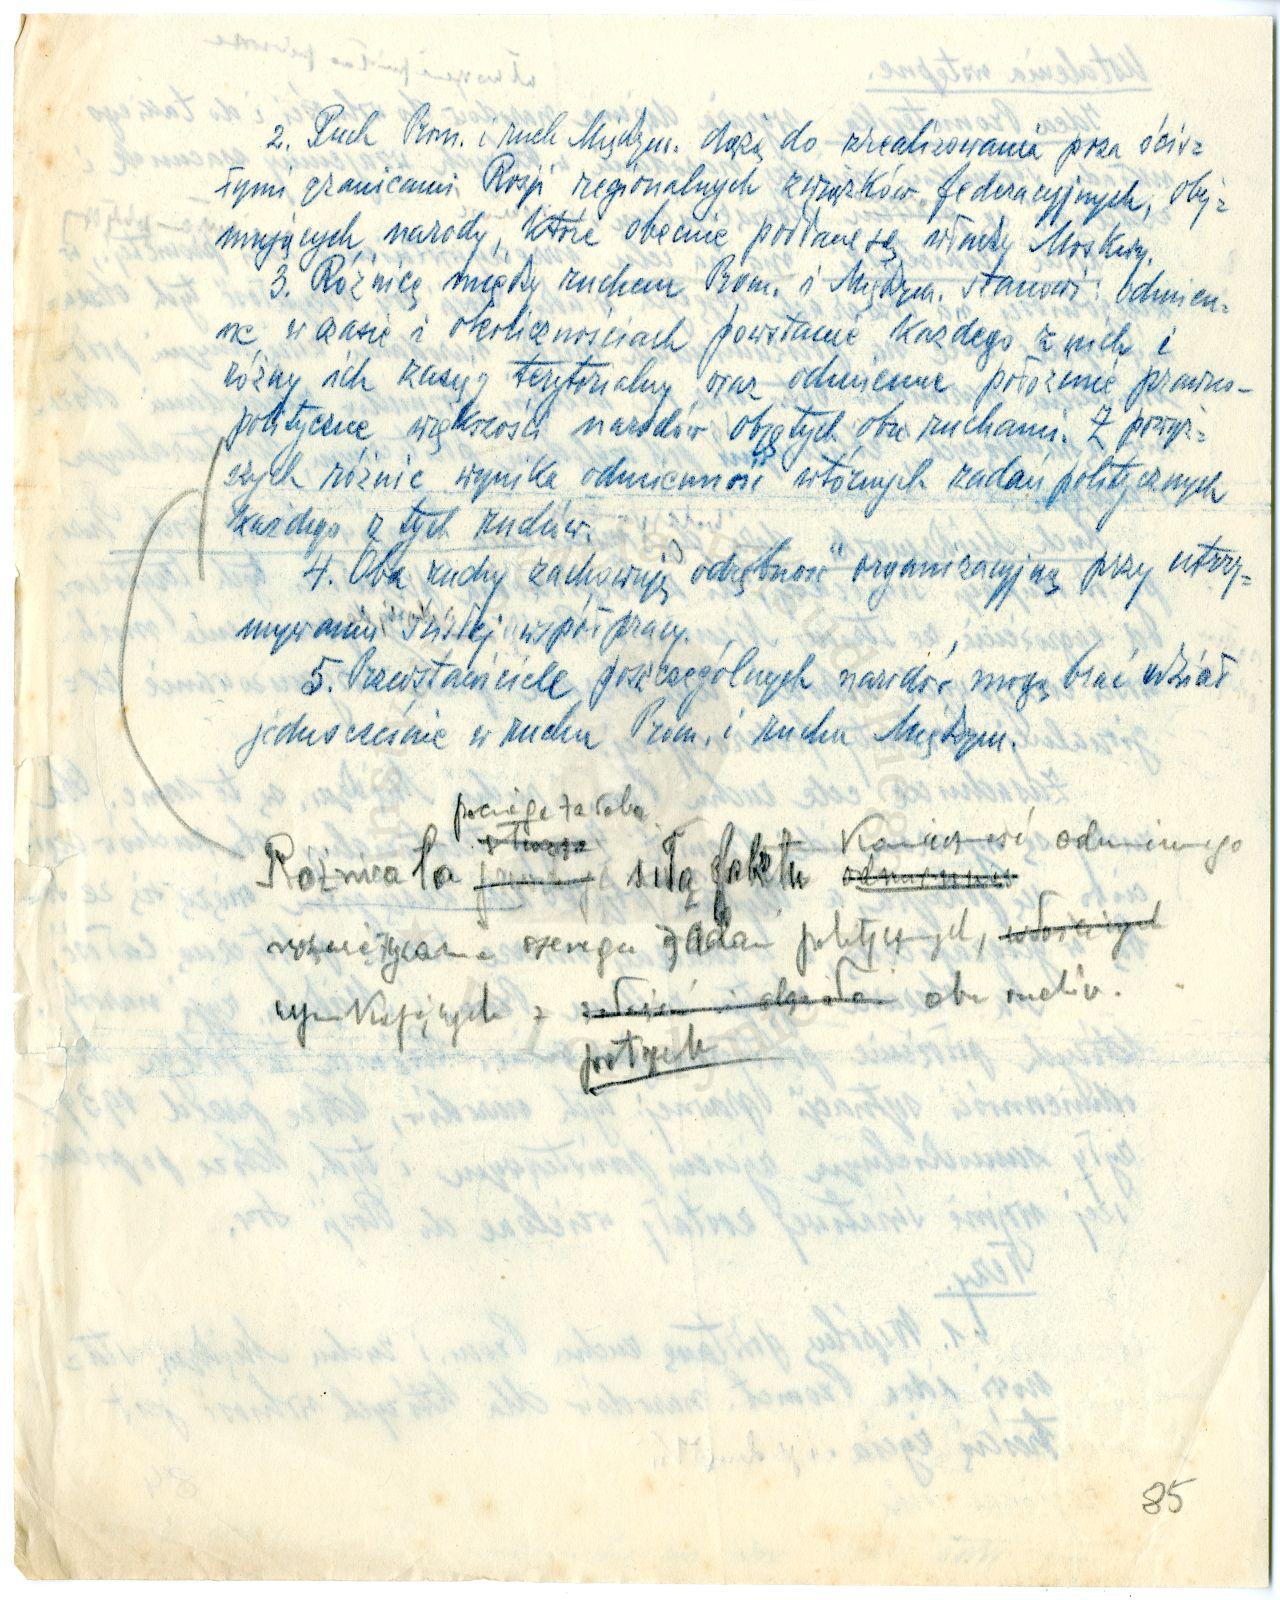 2. Ruch Prom. i ruch Międzym. dążą do zrealizowania poza ścis=
łymi granicami Rosji regionalnych związków federacyjnych, obej=
mujących narody, które obecnie poddane są władzy Moskwy.
3. Różnicę między ruchem Prom. i Międzym. stanowi: odmien-
ne w czasie i okolicznościach powstanie każdego z nich i
różny ich zasięg terytorialny oraz odmienne położenie prawno-
polityczne większości narodów objętych obu ruchami. Z powyż=
szych różnic wynika odmienność wtórnych zadań politycznych
każdego z tych ruchów.
4. Oba ruchy zachowują odrębność organizacyjną przy utrzy=
mywaniu ścisłej współpracy.
5. Przedstawiciele poszczególnych narodów mogą brać udział
jednocześnie w ruchu Prom. i ruchu Międzym.
pociąga za sobą
stwarza
Różnica ta siłą faktu konieczność odmiennego
odmienność
rozwiązania szeregu zadań politycznych,
wynikających z obu ruchów.
potrzeb
85